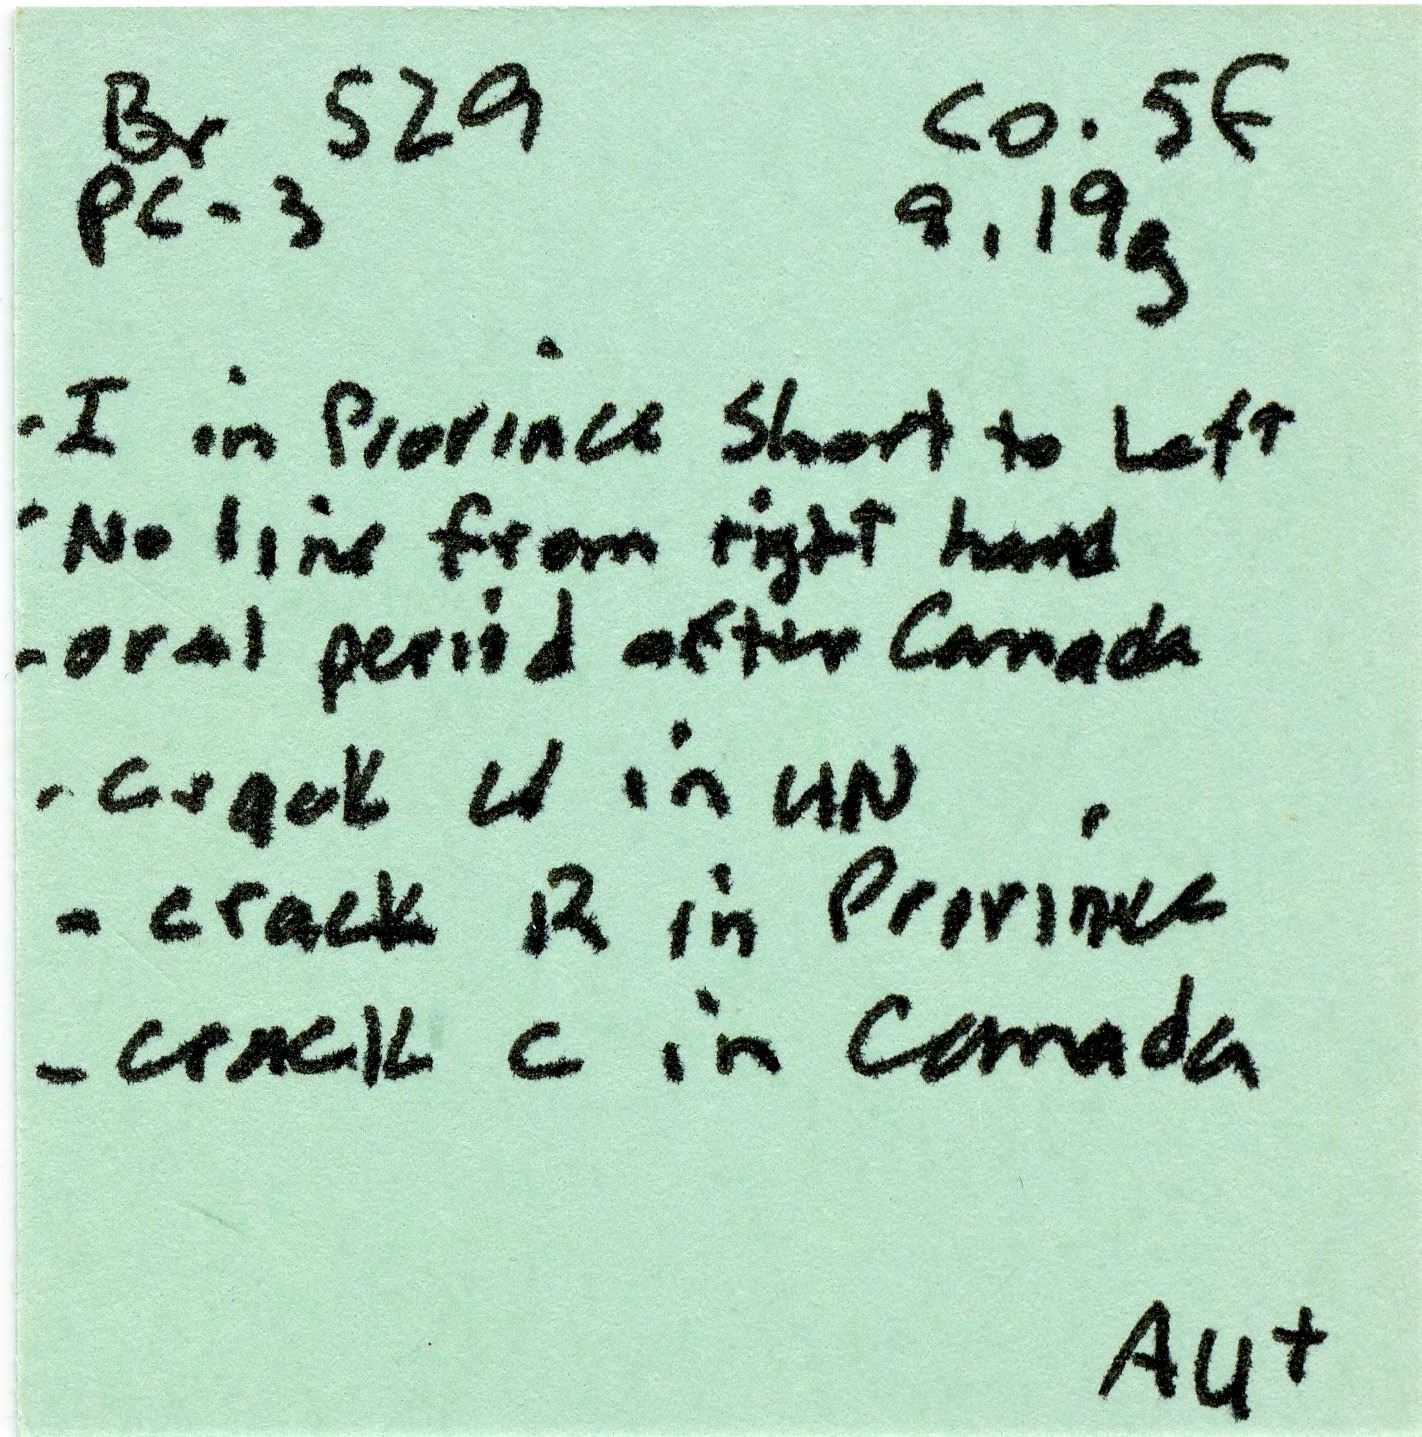 Br 529 Co. 5F
PC-3 9.19g
- I in Province Short to Left
- No line from right hand
- oval period after Canada
- crack U in UN
- crack R in Province
- crack C in Canada
AU+